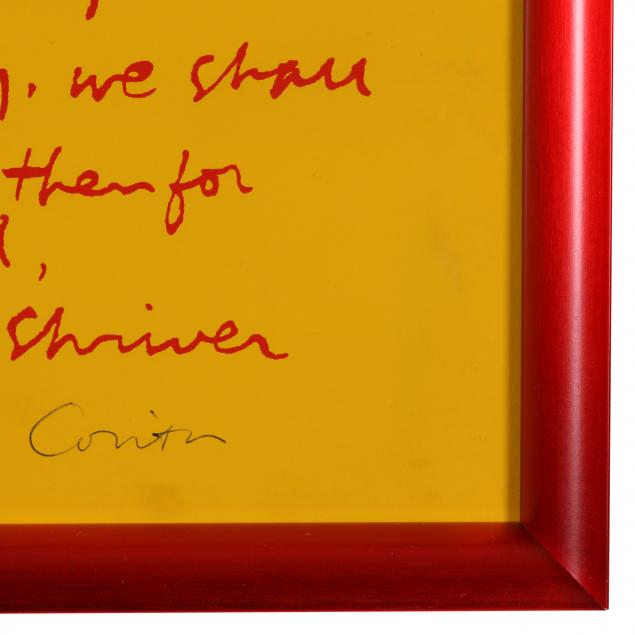 , we shall
then for
,
Shriver
Corita